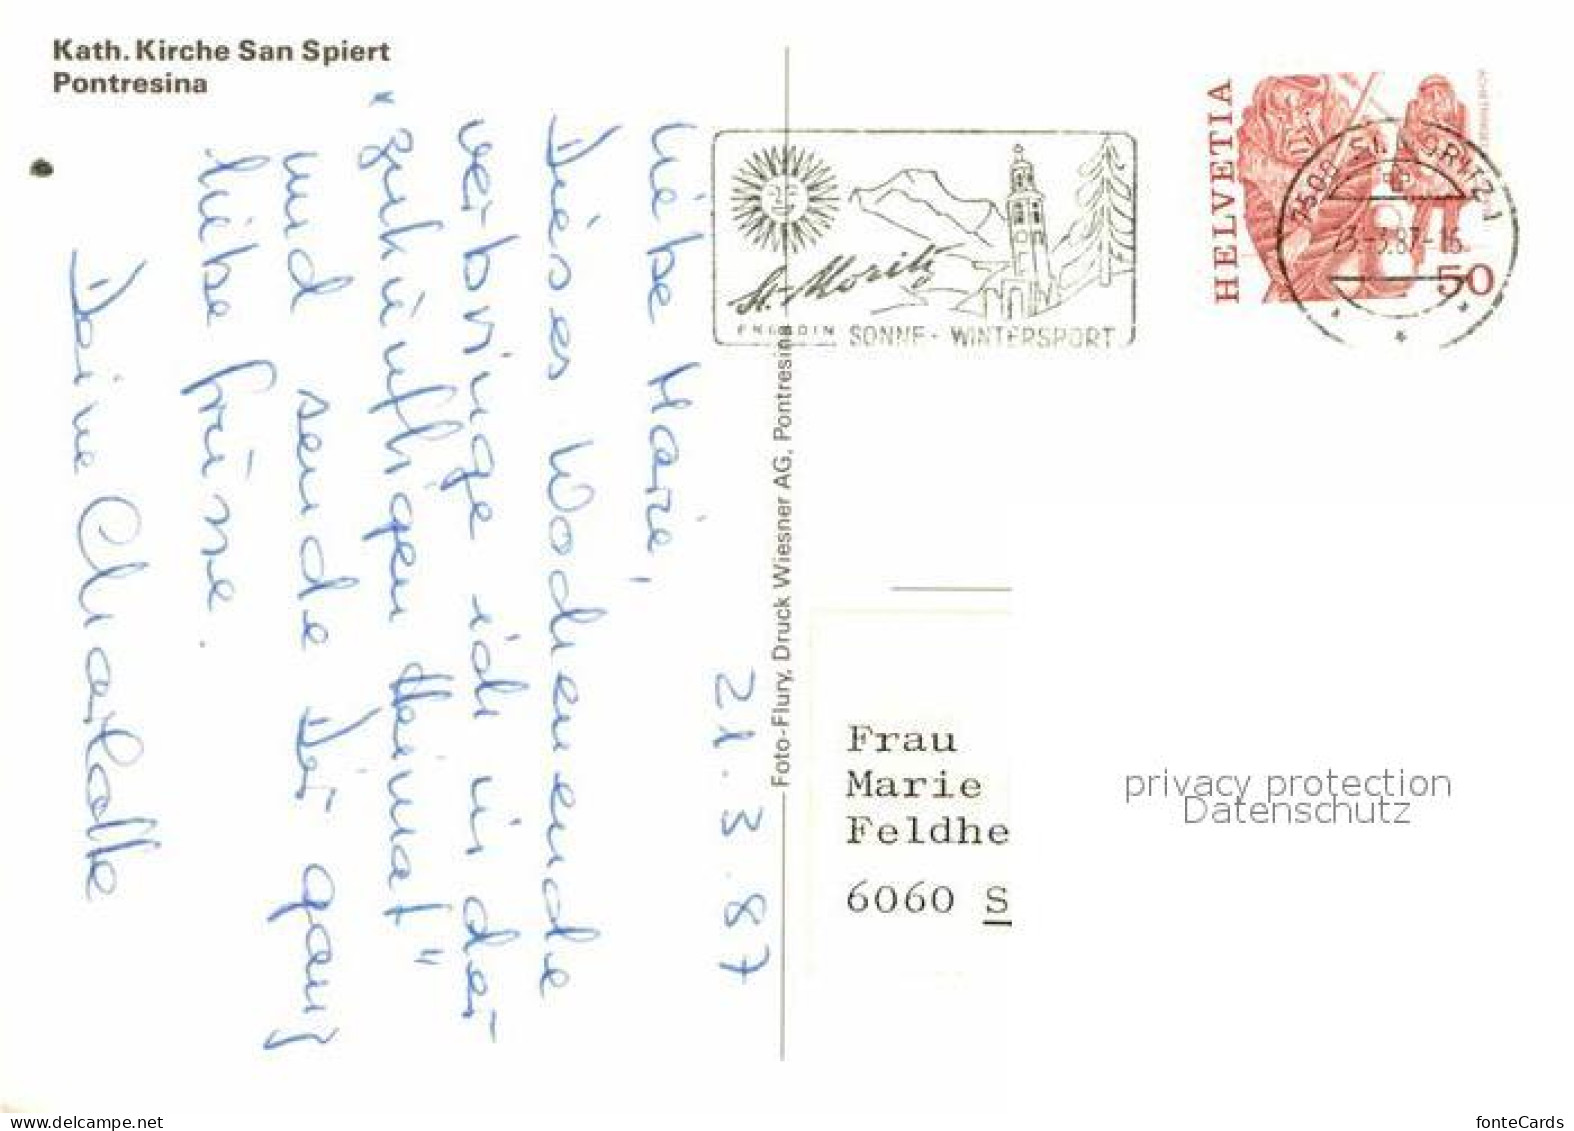 Kath. Kirche San Spiert
Pontresina
21.3.87
Liebe Marie,
Dieses Wochenende
verbringe ich in der
"zukünftigen Heimat"
und sende Dir ganz
liebe Grüsse.
Deine Charlotte
Foto-Flury, Druck Wiesner AG, Pontresina
St. Moritz
ENGADIN SONNE - WINTERSPORT
HELVETIA
50
7500 ST. MORITZ 1
23.-3.87-16
Frau
Marie
Feldhe
6060 S
privacy protection
Datenschutz
delcampe.net
fonteCards